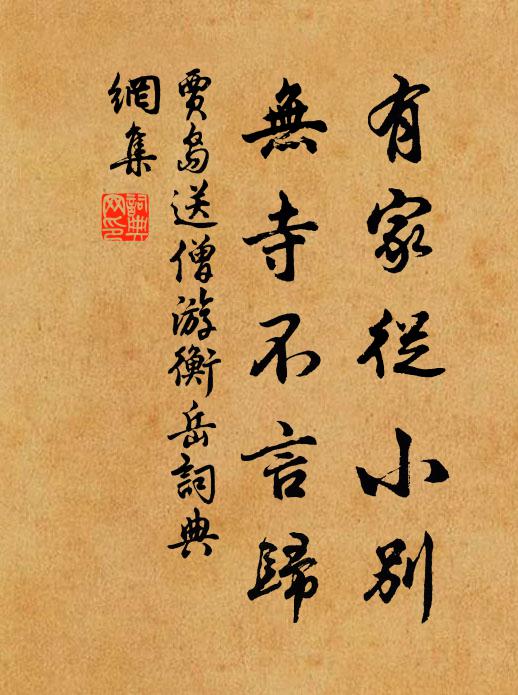 有家從小别
無寺不言歸
賈島送僧游衡岳詞典
網集
詞典
网印